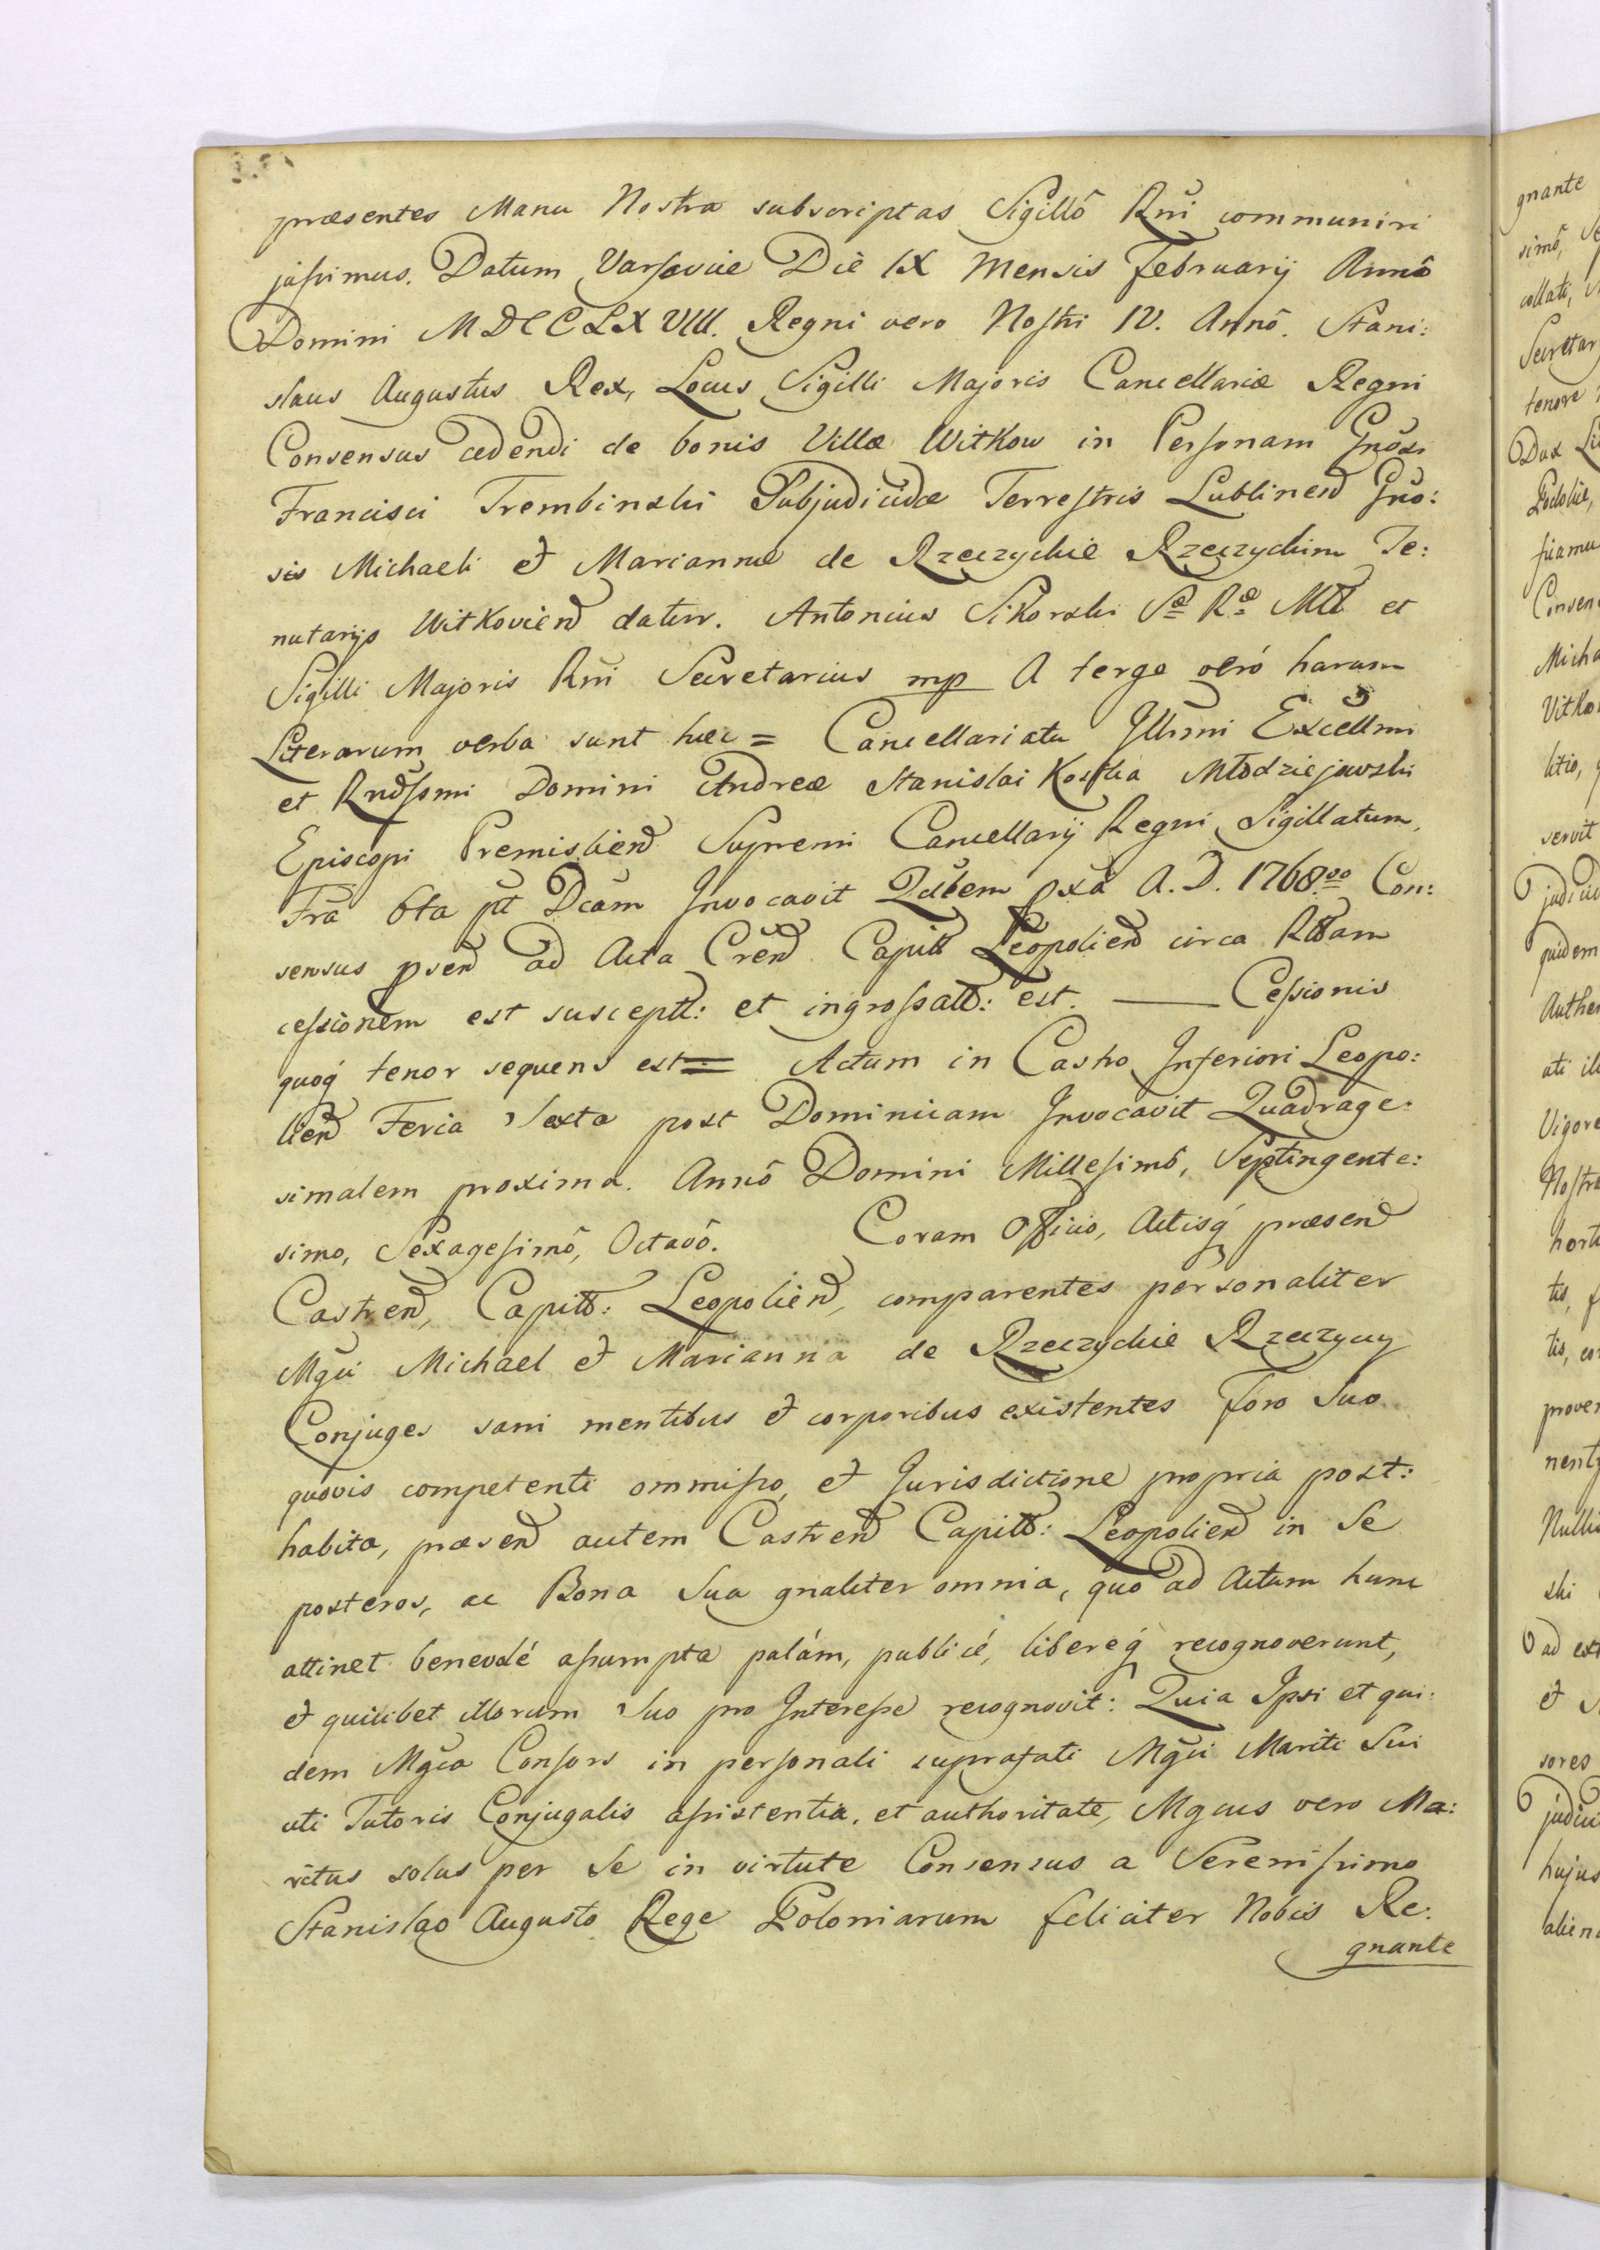 præsentes Manu Nostra subscriptas Sigillô Rni communiri
jussimus. Datum Varsaviæ Die IX Mensis Februarij Annô
Domini MDCCLXVIII. Regni vero Nostri IV. Annô. Stani:
slaus Augustus Rex, Locus Sigilli Majoris Cancellariæ Regni
Consensus cedendi de bonis Villæ Witkow in Personam Gnosi
Francisci Trembinski Subjudicidæ Terrestris Lublinen Gno:
sis Michaeli et Mariannæ de Rzeczyckie Rzeczyckim Te:
nutarijs Witkovien datur. Antonius Sikorski Sæ Ræ Mtt et
Sigilli Majoris Rni Secretarius mp A tergo veró harum
Literarum verba sunt hæc = Cancellariatu Illmi Excellmi
et Rndssmi Domini Andreæ Stanislai Kostka Młodziejowski
Episcopi Premislien Supremi Cancellarij Regni Sigillatum.
Fra 6ta pt Dcam Invocavit Qubem pxa A. D. 1768vo Con:
sensus psen ad Acta Cren Capitt Leopolien circa Rttam
cessionem est susceptt: et ingrossatt: est. — Cessionis
quoq tenor sequens est = Actum in Castro Inferiori Leopo:
lien Feria Sexta post Dominicam Invocavit Quadrage:
simalem proxima. Annô Domini Millesimô, Septingente:
simo, Sexagesimô, Octavô. Coram Officio, Actisq præsen
Castren, Capitt: Leopolien, comparentes personaliter
Mgci Michael et Marianna de Rzeczyckie Rzeczyccy
Conjuges sani mentibus et corporibus existentes Foro Suo
quovis competenti ommisso, et Jurisdictione propria post:
habita, præsen autem Castren Capitt: Leopolien in Se
posteros, ac Bona Sua gnaliter omnia, quo ad Actum hunc
attinet benevolé assumpta palám, publicé, libereq recognoverunt,
et quilibet illorum Suo pro Interesse recognovit: Quia Ipsi et qui:
dem Mgca Consors in personali suprafati Mgci Mariti Sui
uti Tutoris Conjugalis assistentia, et authoritate, Mgcus vero Ma:
ritus solus per Se in virtute Consensus a Serenissimo
Stanislao Augusto Rege Poloniarum feliciter Nobis Re:
gnante